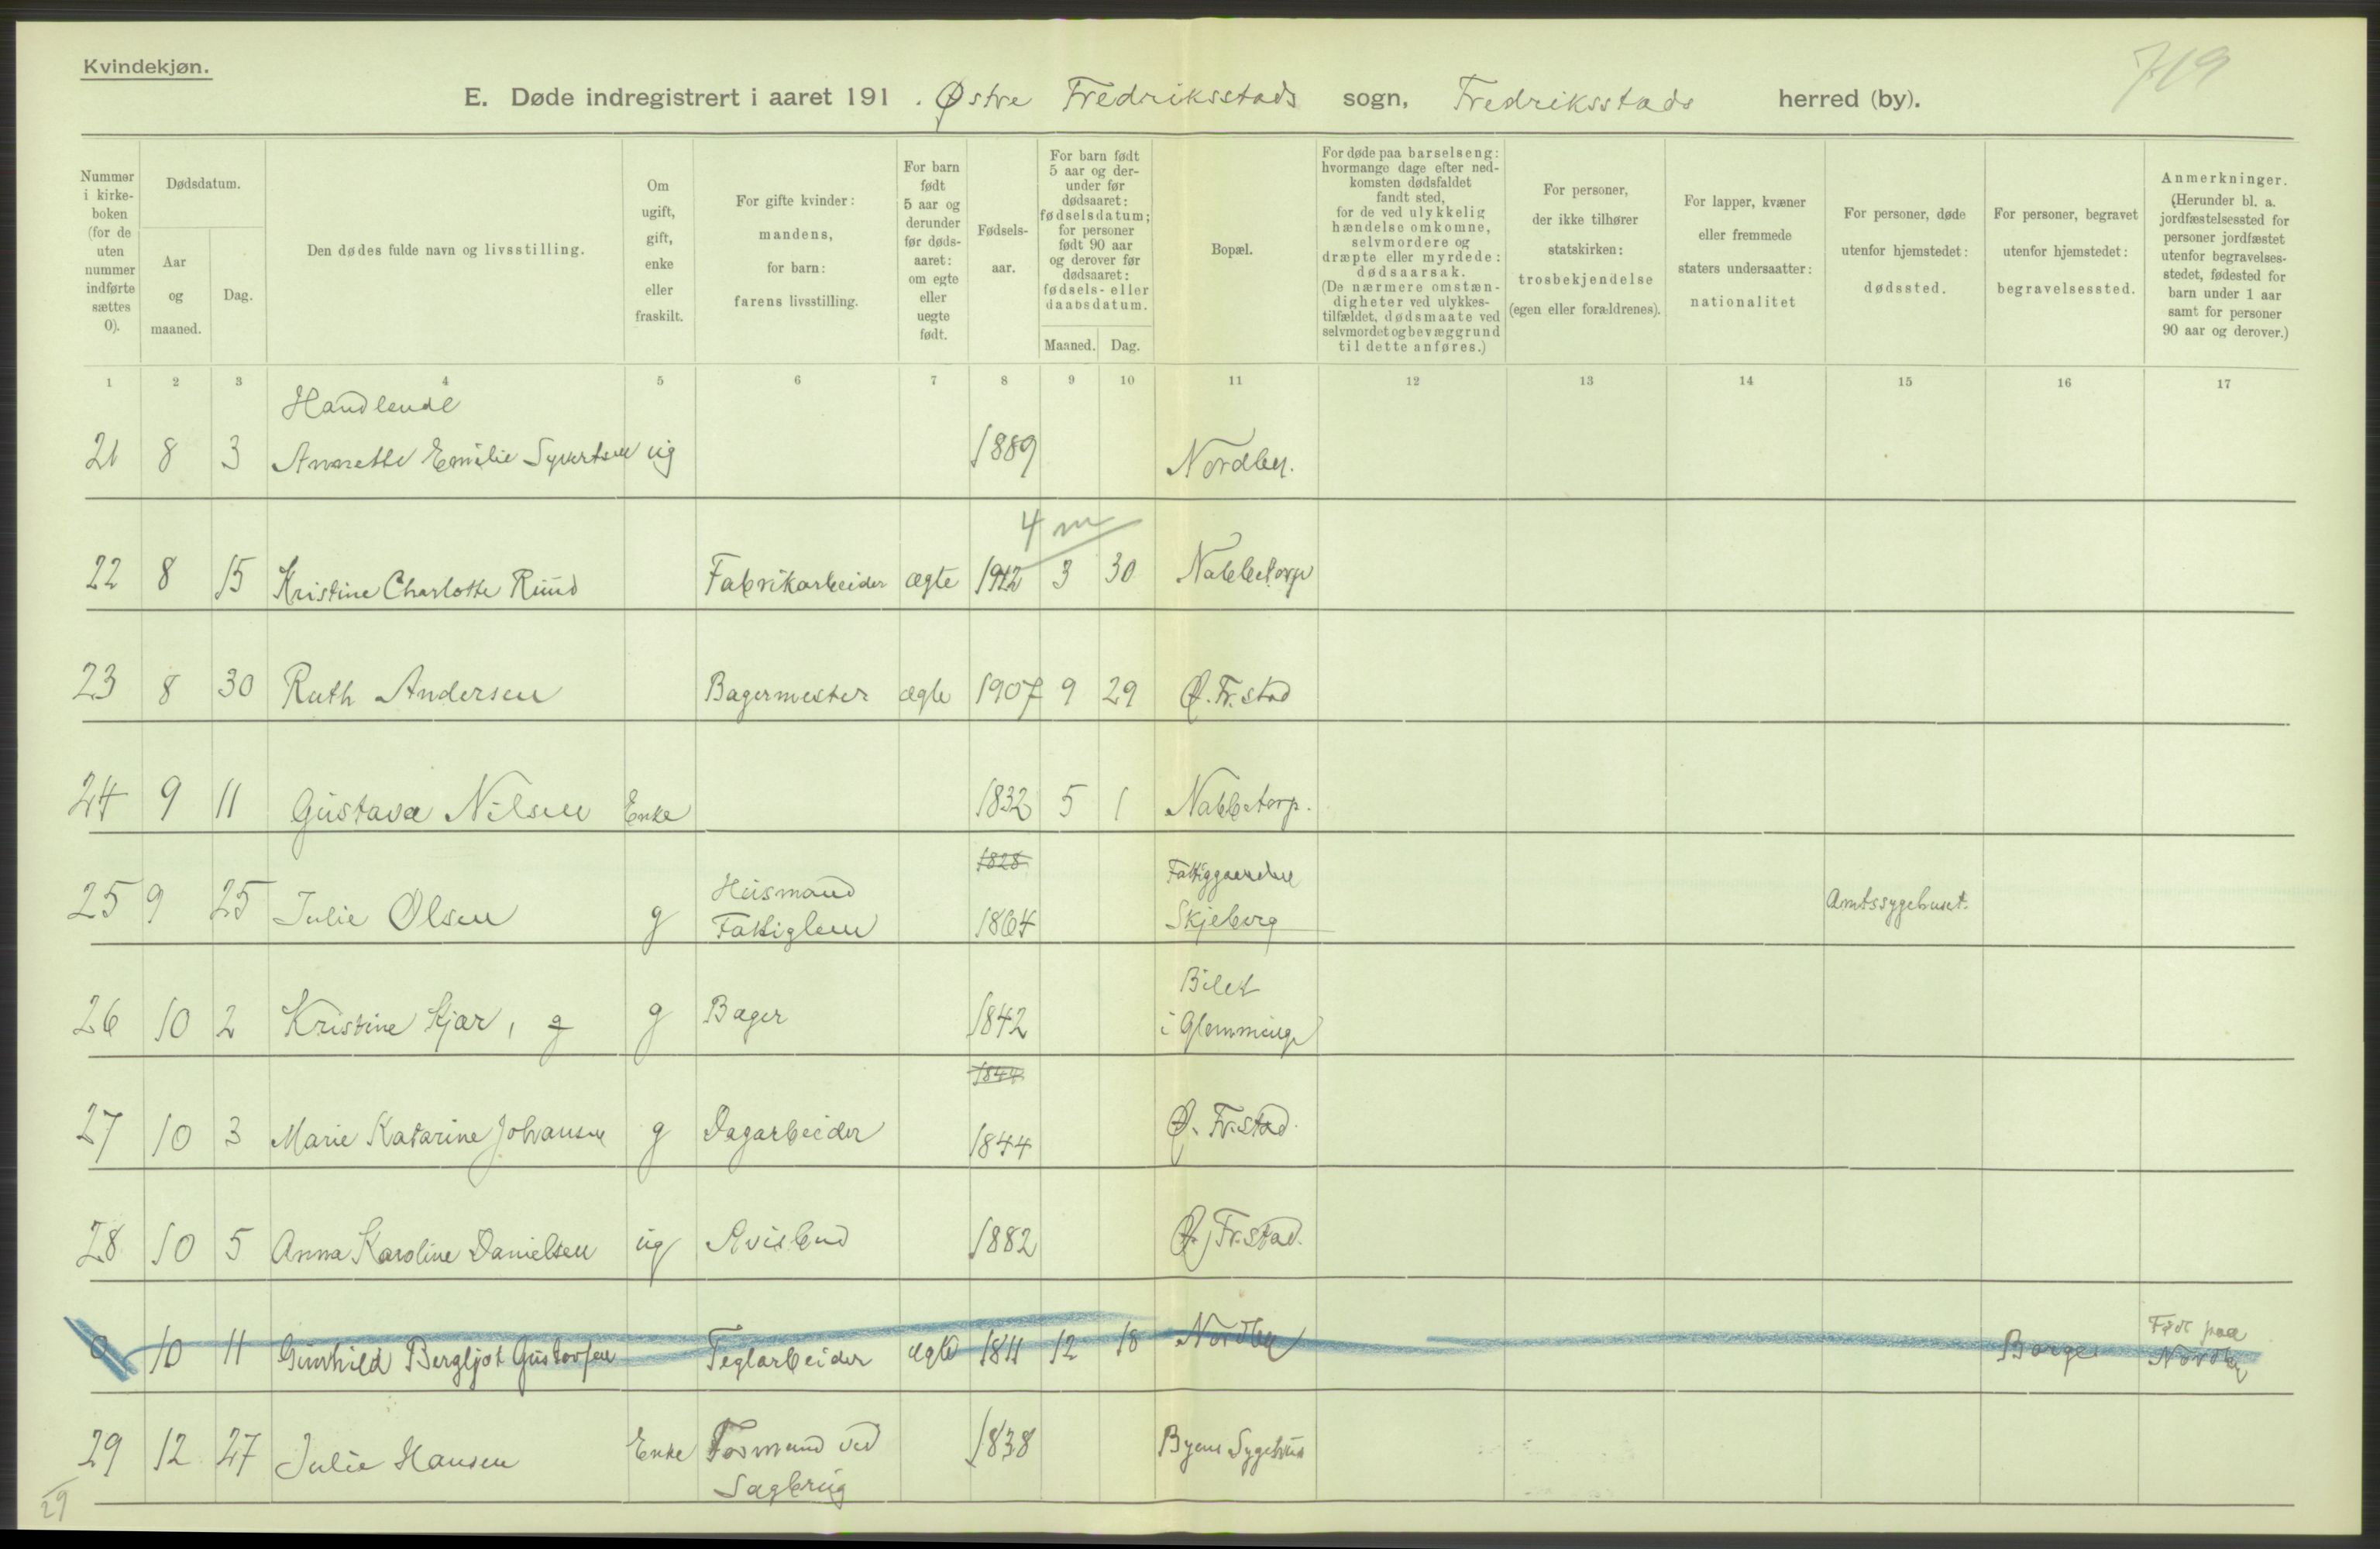 Kvindekjøn.
719
E. Døde indregistrert i aaret 191 . Østre Fredriksstads sogn, Fredriksstads herred (by).
Nummer i kirkeboken (for de uten nummer indførte sættes 0).
Dødsdatum.
Aar og maaned.
Dag.
Den dødes fulde navn og livsstilling.
Om ugift, gift, enke eller fraskilt.
For gifte kvinder: mandens, for barn: farens livsstilling.
For barn født 5 aar og derunder før dødsaaret: om egte eller uegte født.
Fødselsaar.
For barn født 5 aar og derunder før dødsaaret: fødselsdatum; for personer født 90 aar og derover før dødsaaret: fødsels- eller daabsdatum.
Maaned. Dag.
Bopæl.
For døde paa barselseng: hvormange dage efter nedkomsten dødsfaldet fandt sted, for de ved ulykkelig hændelse omkomne, selvmordere og dræpte eller myrdede: dødsaarsak. (De nærmere omstændigheter ved ulykkestilfældet, dødsmaate ved selvmordet og bevæggrund til dette anføres.)
For personer, der ikke tilhører statskirken: trosbekjendelse (egen eller forældrenes).
For lapper, kvæner eller fremmede staters undersaatter: nationalitet
For personer, døde utenfor hjemstedet: dødssted.
For personer, begravet utenfor hjemstedet: begravelsessted.
Anmerkninger. (Herunder bl. a. jordfæstelsessted for personer jordfæstet utenfor begravelsesstedet, fødested for barn under 1 aar samt for personer 90 aar og derover.)
1 2 3 4 5 6 7 8 9 10 11 12 13 14 15 16 17
Handlende
21 8 3 Annette Emilie Syvertsen ug 1889 Nordby.
4 m
22 8 15 Kristine Charlotte Ruud Fabrikarbeider ægte 1912 3 30 Nabbetorp
23 8 30 Ruth Andersen Bagermester ægte 1907 9 29 Ø. Fr. stad
24 9 11 Gustava Nilsen Enke 1832 5 1 Nabbetorp.
1828
25 9 25 Julie Olsen g Husmand Fattiglem 1864 Fattiggaarden Skjeberg Amtssygehuset.
26 10 2 Kristine Kjær, g g Bager 1842 Bilet i Glemminge
1844
27 10 3 Marie Katarine Johansen g Dagarbeider 1844 Ø. Fr.stad.
28 10 5 Anna Karoline Danielsen ug Avisbud 1882 Ø. Fr.stad.
0 10 11 Gunhild Bergljot Gustavsen Teglarbeider ægte 1811 12 18 Nordby Borge Født paa Nordby
29 12 27 Julie Hansen Enke Formand ved Sagbrug 1838 Byens Sygehus
29